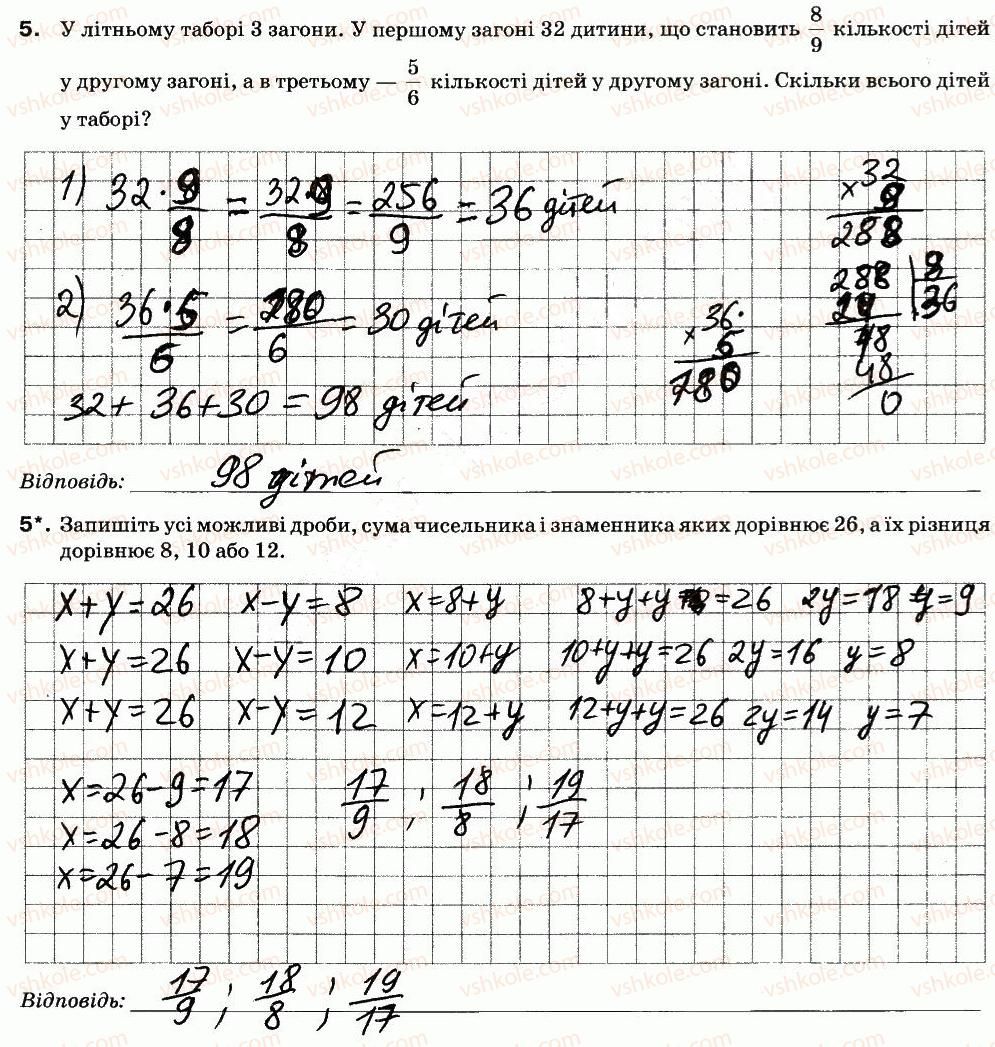 5. У літньому таборі 3 загони. У першому загоні 32 дитини, що становить 8/9 кількості дітей
у другому загоні, а в третьому — 5/6 кількості дітей у другому загоні. Скільки всього дітей
у таборі?
1) 32 · 9/8 = 32·9/8 = 256/9 = 36 дітей
32
× 9
288
288 | 8
24 | 36
48
48
0
2) 36·5/6 = 180/6 = 30 дітей
36·
× 5
180
32 + 36 + 30 = 98 дітей
Відповідь: 98 дітей
5*. Запишіть усі можливі дроби, сума чисельника і знаменника яких дорівнює 26, а їх різниця
дорівнює 8, 10 або 12.
x+y=26 x-y=8 x=8+y 8+y+y=26 2y=18 y=9
x+y=26 x-y=10 x=10+y 10+y+y=26 2y=16 y=8
x+y=26 x-x=12 x=12+y 12+y+y=26 2y=14 y=7
x=26-9=17 17/9 ; 18/8 ; 19/17
x=26-8=18
x=26-7=19
Відповідь: 17/9 ; 18/8 ; 19/17